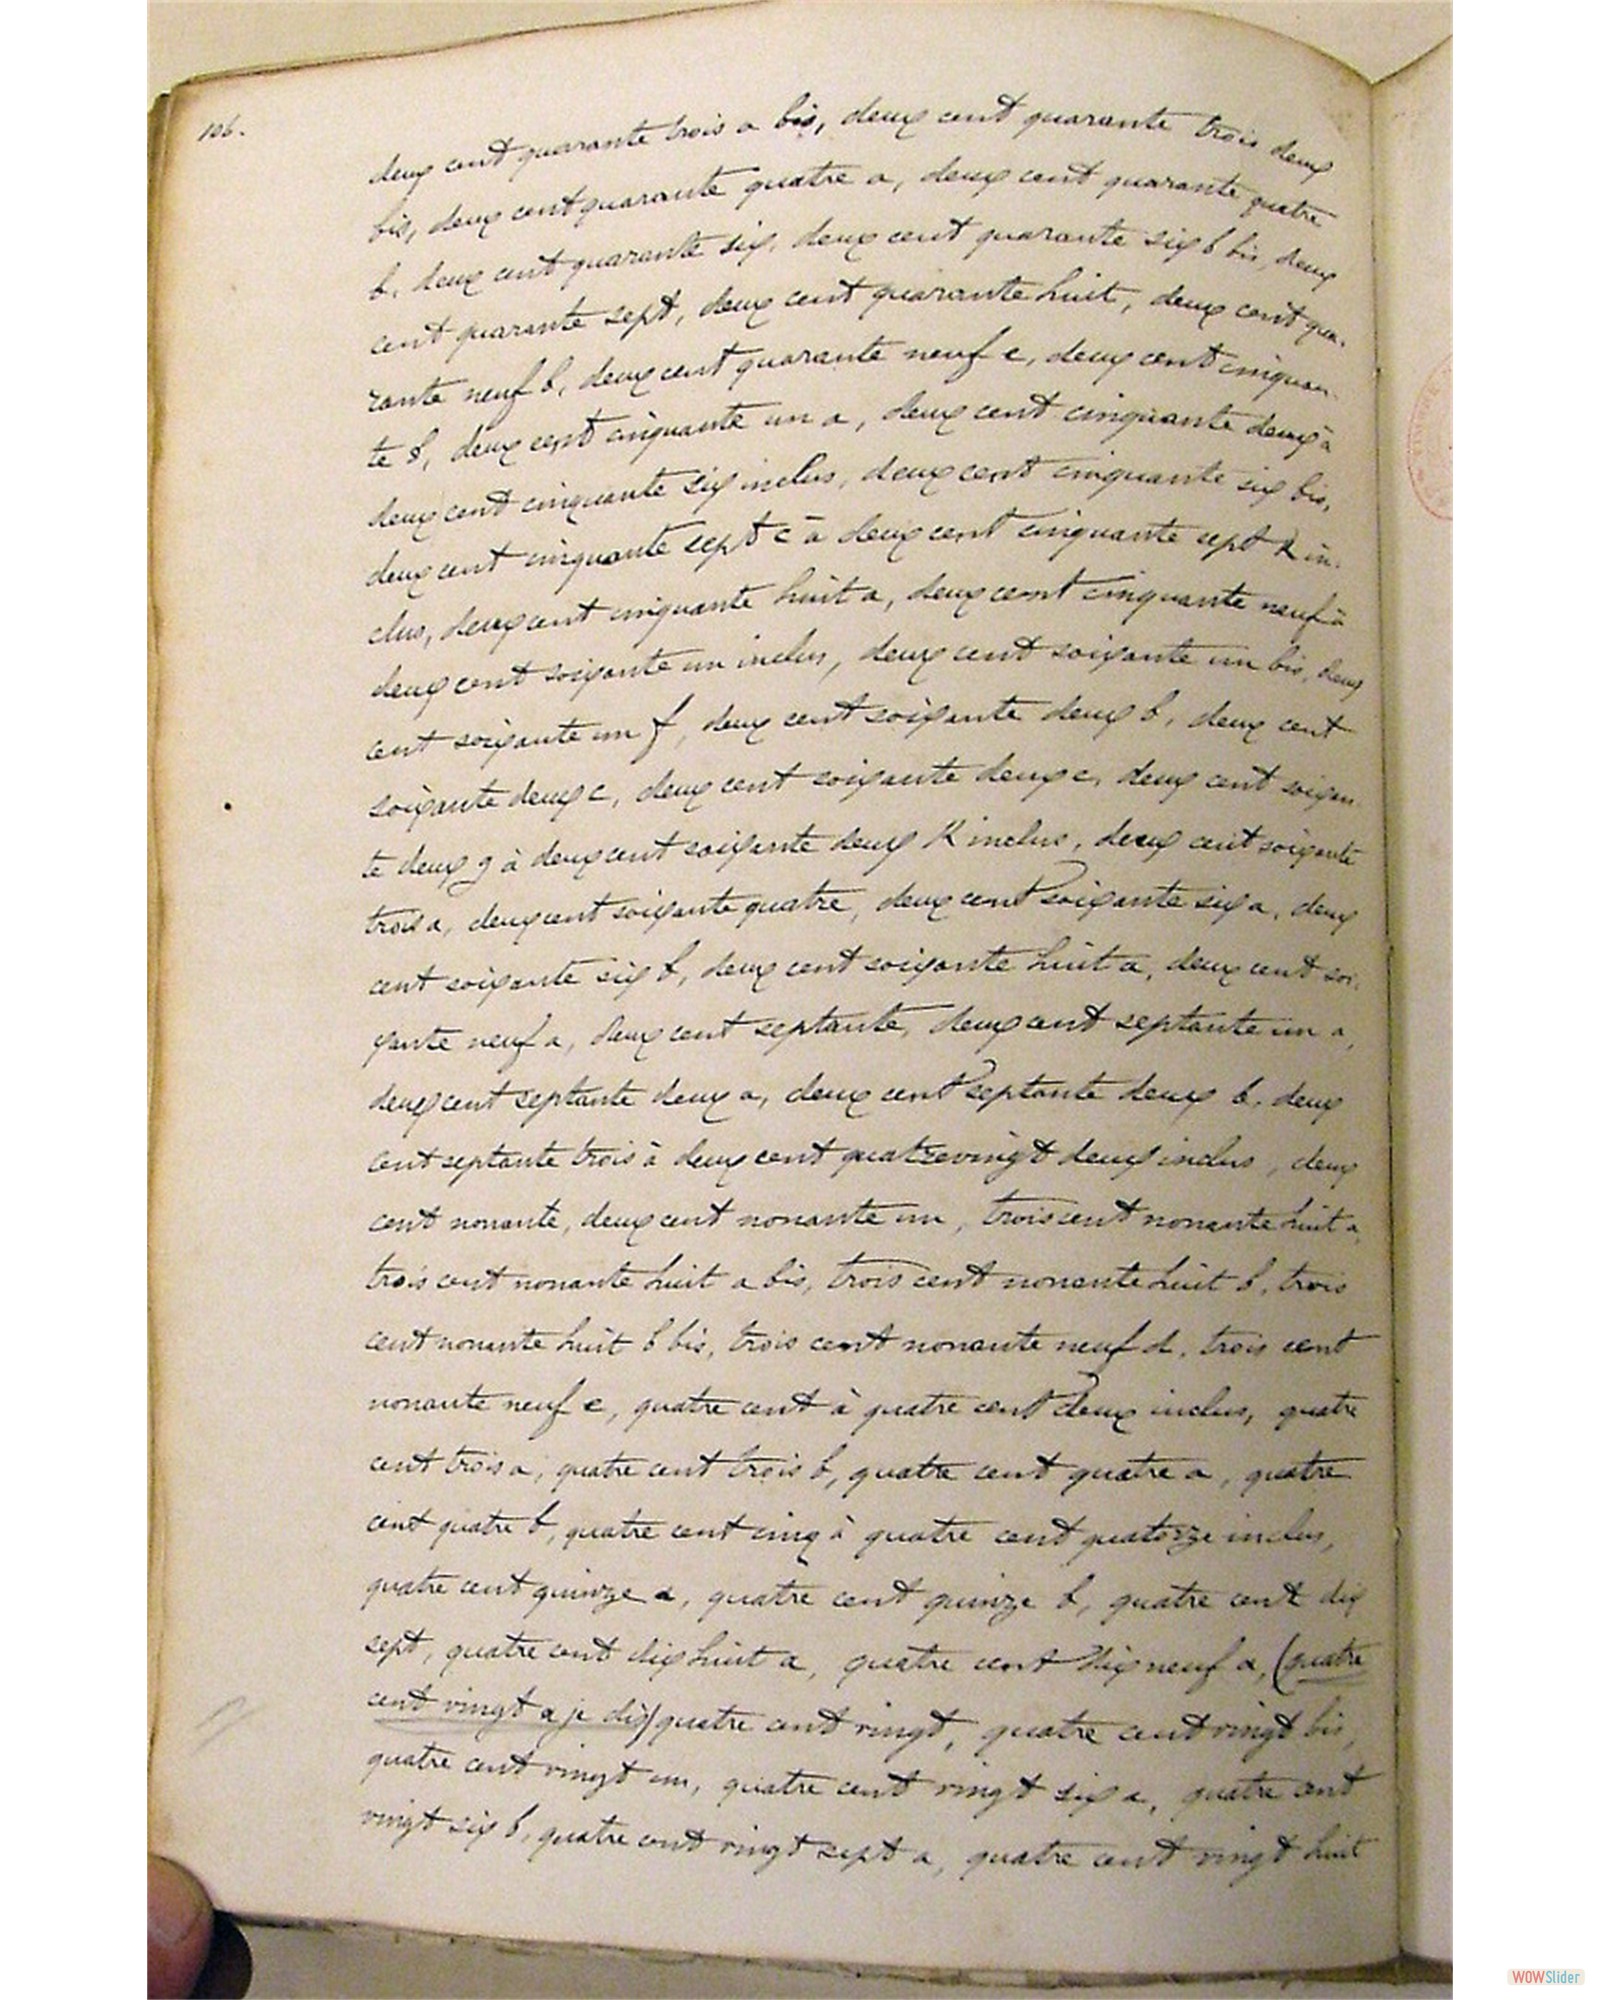 106.
deux cent quarante trois a bis, deux cent quarante trois deux
bis, deux cent quarante quatre a, deux cent quarante quatre
b, deux cent quarante six, deux cent quarante six b bis, deux
cent quarante sept, deux cent quarante huit, deux cent qua-
rante neuf b, deux cent quarante neuf c, deux cent cinquan-
te b, deux cent cinquante un a, deux cent cinquante deux à
deux cent cinquante six inclus, deux cent cinquante six bis,
deux cent cinquante sept c à deux cent cinquante sept k in-
clus, deux cent cinquante huit a, deux cent cinquante neuf à
deux cent soixante un inclus, deux cent soixante un bis, deux
cent soixante un f, deux cent soixante deux b, deux cent
soixante deux c, deux cent soixante deux e, deux cent soixan-
te deux g à deux cent soixante deux K inclus, deux cent soixante
trois a, deux cent soixante quatre, deux cent soixante six a, deux
cent soixante six b, deux cent soixante huit a, deux cent soi-
xante neuf a, deux cent septante, deux cent septante un a,
deux cent septante deux a, deux cent septante deux b, deux
cent septante trois à deux cent quatrevingt deux inclus, deux
cent nonante, deux cent nonante un, trois cent nonante huit a,
trois cent nonante huit a bis, trois cent nonante huit b, trois
cent nonante huit b bis, trois cent nonante neuf d, trois cent
nonante neuf e, quatre cent à quatre cent deux inclus, quatre
cent trois a, quatre cent trois b, quatre cent quatre a, quatre
cent quatre b, quatre cent cinq à quatre cent quatorze inclus,
quatre cent quinze a, quatre cent quinze b, quatre cent dix
sept, quatre cent dix huit a, quatre cent dix neuf a, (quatre
cent vingt a je dis) quatre cent vingt, quatre cent vingt bis,
quatre cent vingt un, quatre cent vingt six a, quatre cent
vingt six b, quatre cent vingt sept a, quatre cent vingt huit
WOWSlider